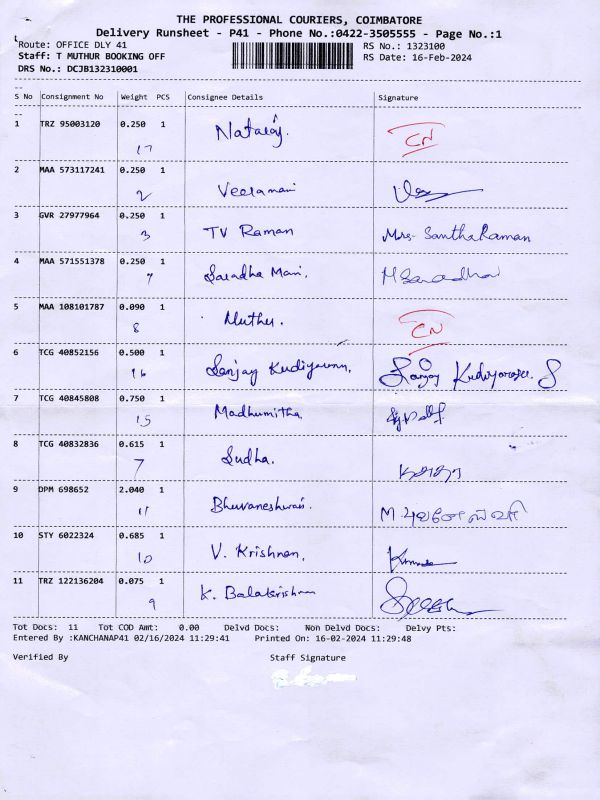 THE PROFESSIONAL COURIERS, COIMBATORE
Delivery Runsheet - P41 - Phone No.:0422-3505555 - Page No.:1
Route: OFFICE DLY 41 RS No.: 1323100
Staff: T MUTHUR BOOKING OFF RS Date: 16-Feb-2024
DRS No.: DCJB132310001
S No Consignment No Weight PCS Consignee Details Signature
1 TRZ 95003120 0.250 1 Nataraj. CN
17
2 MAA 573117241 0.250 1 Veeramani
2
3 GVR 27977964 0.250 1 TV Raman Mrs. Santha Raman
3
4 MAA 571551378 0.250 1 Saradha Mani. M Saradha
7
5 MAA 108101787 0.090 1 Muthu. CN
8
6 TCG 40852156 0.500 1 Sanjay
16
7 TCG 40845808 0.750 1 Madhumitha
15
8 TCG 40832836 0.615 1 Sudha.
7
9 DPM 698652 2.040 1 Bhuvaneshwari. M. புவனேஸ்வரி
11
10 STY 6022324 0.685 1 V. Krishnan.
10
11 TRZ 122136204 0.075 1 K. Balakrishnan
9
Tot Docs: 11 Tot COD Amt: 0.00 Delvd Docs: Non Delvd Docs: Delvy Pts:
Entered By :KANCHANAP41 02/16/2024 11:29:41 Printed On: 16-02-2024 11:29:48
Verified By Staff Signature